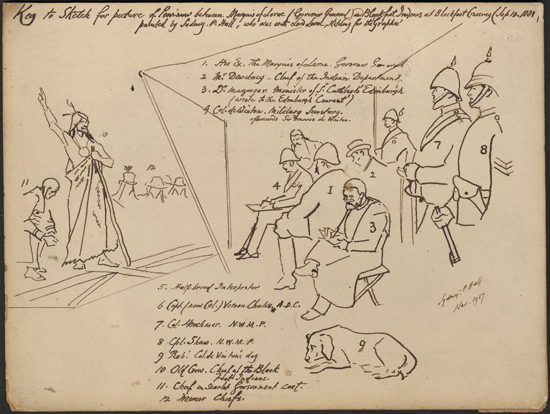 Key to Sketch for picture of Pow-wow between Marquis of Lorne (Governor General) and Blackfoot Indians at Blackfoot Crossing (Sep 10. 1881,
painted by Sydney P. Hall, who was with Lord Lorne, sketching for the Graphic
1. His Ex. The Marquis of Lorne. Governor General
2. Mr Dewdney - Chief of the Indian Department.
3. Dr. Macgregor Minister of St Cuthbert's Edinburgh
(wrote to the Edinburgh Courant)
4 Col. de Winton. Military Secretary.
afterwards Sir Francis de Winton.
10
11
12
4
1
2
3
7
8
9
5. Half-breed Interpreter
6 Capt. (now Col.) Vernon Chater A.D.C.
7. Col. Herchmer. N.W.M.P.
8 Capt. Shaw. N.W.M.P.
9 Col. de Winton's dog
10 Old Crow. Chief of the Black
Feet Indians.
11. Chief in scarlet Government coat.
12 Minor Chiefs.
Sydney P. Hall
Nov. 1917